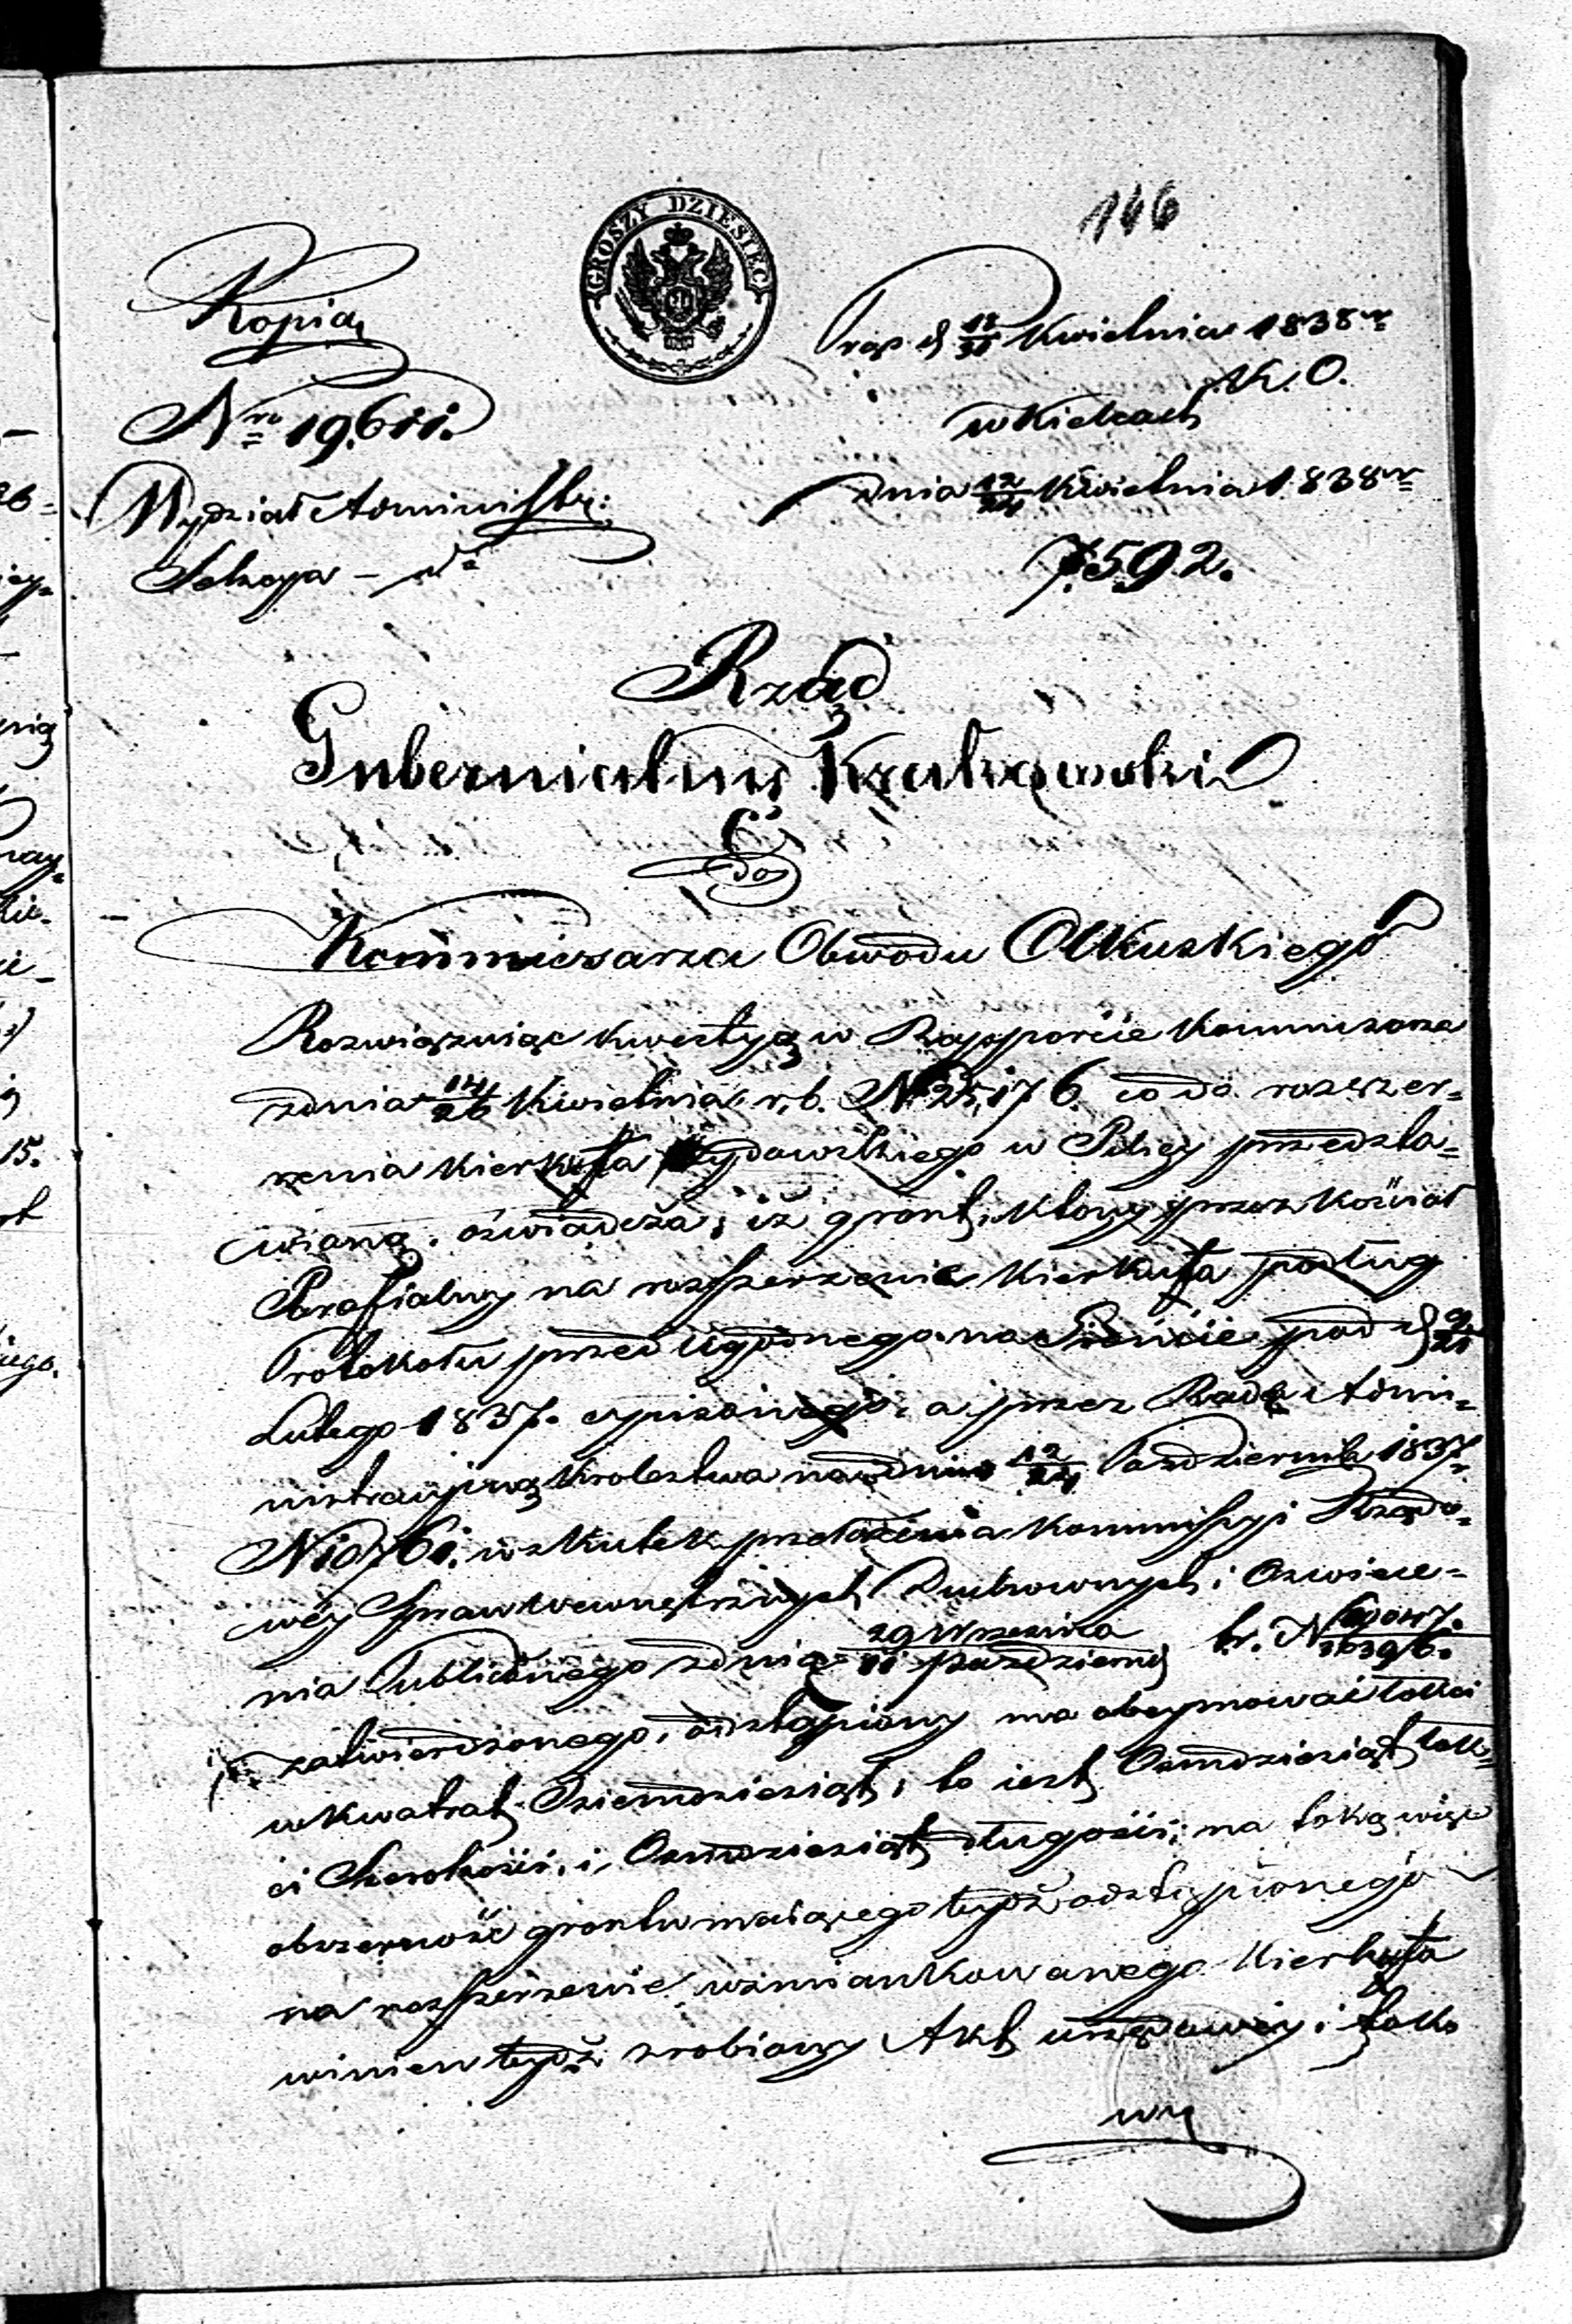 146
GROSZY DZIESIĘC
Kopia
Nro 19,611.
Wydział Administr:
Sekcya
Kwietnia 1838 r
K. O.
w Kielcach
dnia 12/24 Kwietnia 1838 r
7.592.
Rząd
Gubernialny Krakowski
do
Kommissarza Obwodu Olkuskiego
Rozwiązuiąc kwestyą w Rapporcie Kommissarza
z dnia 14/26 Kwietnia r. b. N 25,176. co do rozszer=
zenia kierkuta żydowskiego w Pilicy przedsta=
wioną. oświadcza, iż gront, który przez kościoł
Parafialny na rozszerzenie kierkuta podług
Protokołu przedugodnego na Gróncie pod d 9/21
Lutego 1837. spisanego, a przez Radę Admi=
nistracyjną Krolestwa na dniu 12/24 Pazdziernika 1837 r.
N 10761. w skutek przełożenia Kommissyi Rządo=
wéy Spraw Wewnętrznych Duchownych i Oswiece=
nia Publicznego z dnia 29 Wrzesnia / 11 pazdziern br. N
zatwierdzonego, odstąpiony ma obeymować łokci
w kwatrat Osiemdziesiąt, to iest, Osmdziesiąt łok=
ci Szerokości, i, Osmdziesiąt długości; na taką więc
obszerność grontu maiącego bydź odstąpionego
na rozszerzenie wzmiankowanego Kierkuta
winien bydź zrobiony Akt urzędowéy i tako
wy